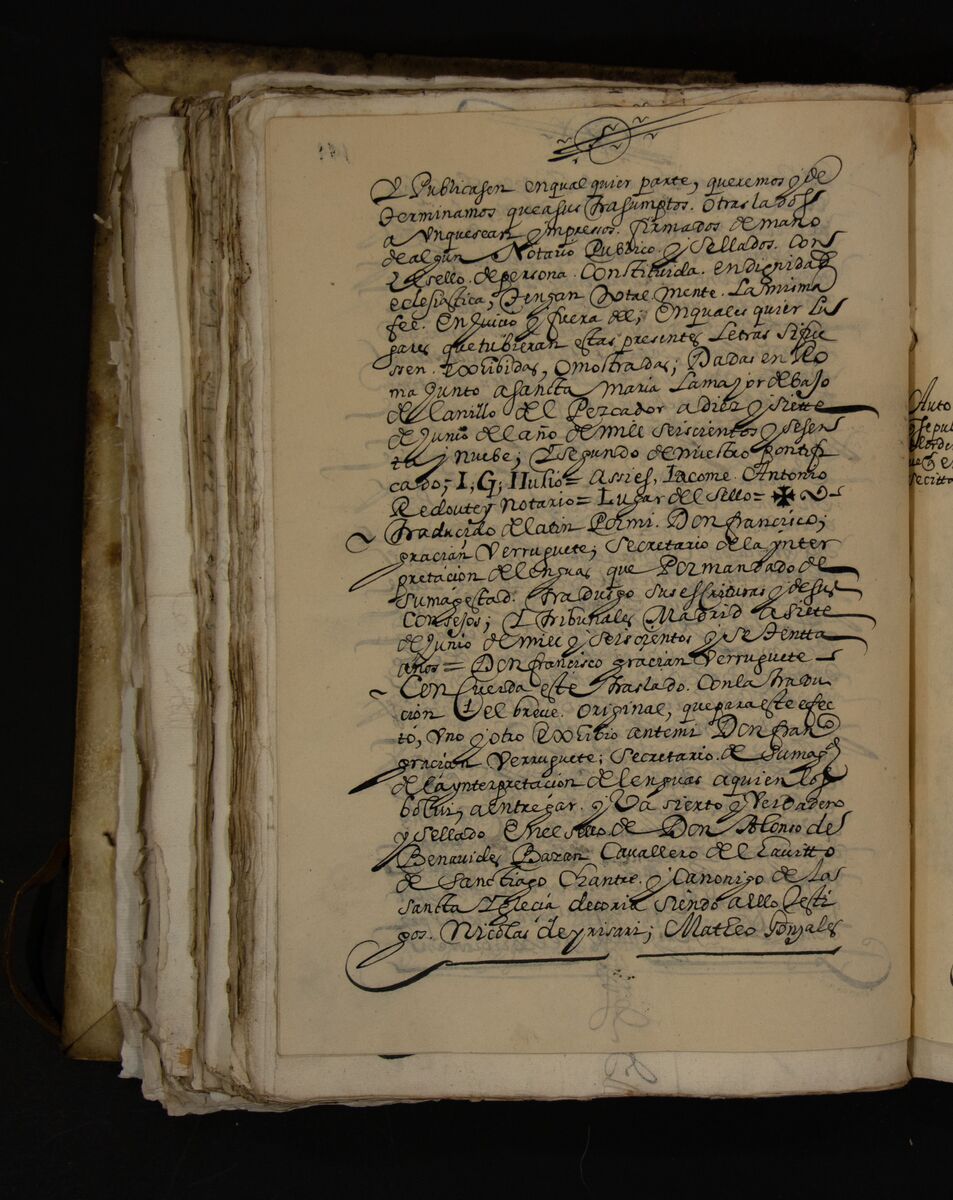 Y Publicasen enqualquier parte, queremos y de
terminamos queasus trasumptos. Otraslados
a Vnquesean ympressos. firmados demano
dealgun Notario Publico. y sellados. Con
El sello. depersona. Constituida. endignidad
eclesiastica, tengan total mente. Lamisma
fee. EnJuicio y fuera del; Enquales quier Lu
gares quetubieran estas presentes Letras sifue
ssen. Exxibidas, Omostradas; Dadas en Ro
ma Junto asancta Maria Lamajor debajo
de lanillo del Pezcador adiez y siette
de Junio del año demill seiscientos y sesen
ta y nuebe; El segundo denuestro pontifi
cado; I, G, Ilusio= Assies, Iacome. Antonio
Redoutey Notario= Lugar del sello= ✠
traducido delatin Pormi. Don francisco;
gracian Verruguete; Secretario dela ynter
pretacion delenguas que Pormandado de
sumagestad. traduigo sus escrituras y desus
Consejos; Y tribunales Madrid asiete
de Junio demill y seiscientos y settentta
años= Don francisco gracian Verruguete
Con Cuerda este traslado. Conla tradu
cion del breve. original, queparaesteefec
tó, Vno y otro Exxibio antemi Don franco
gracian Verruguete; Secretario. de Sumagd
de la ynterpretacion delenguas aquien los
bolui, aentregar. y Va sierto y Verdadero
y sellado Enel sello de Don Alonso de
Benauides Bazan Cavallero del hauitto
de Sanctiago Chantre. y Canonigo de las
sancta Yglecia decoria siendo aello testi
gos. Nicolas de yrisari; Matheo Gonzales
Auto